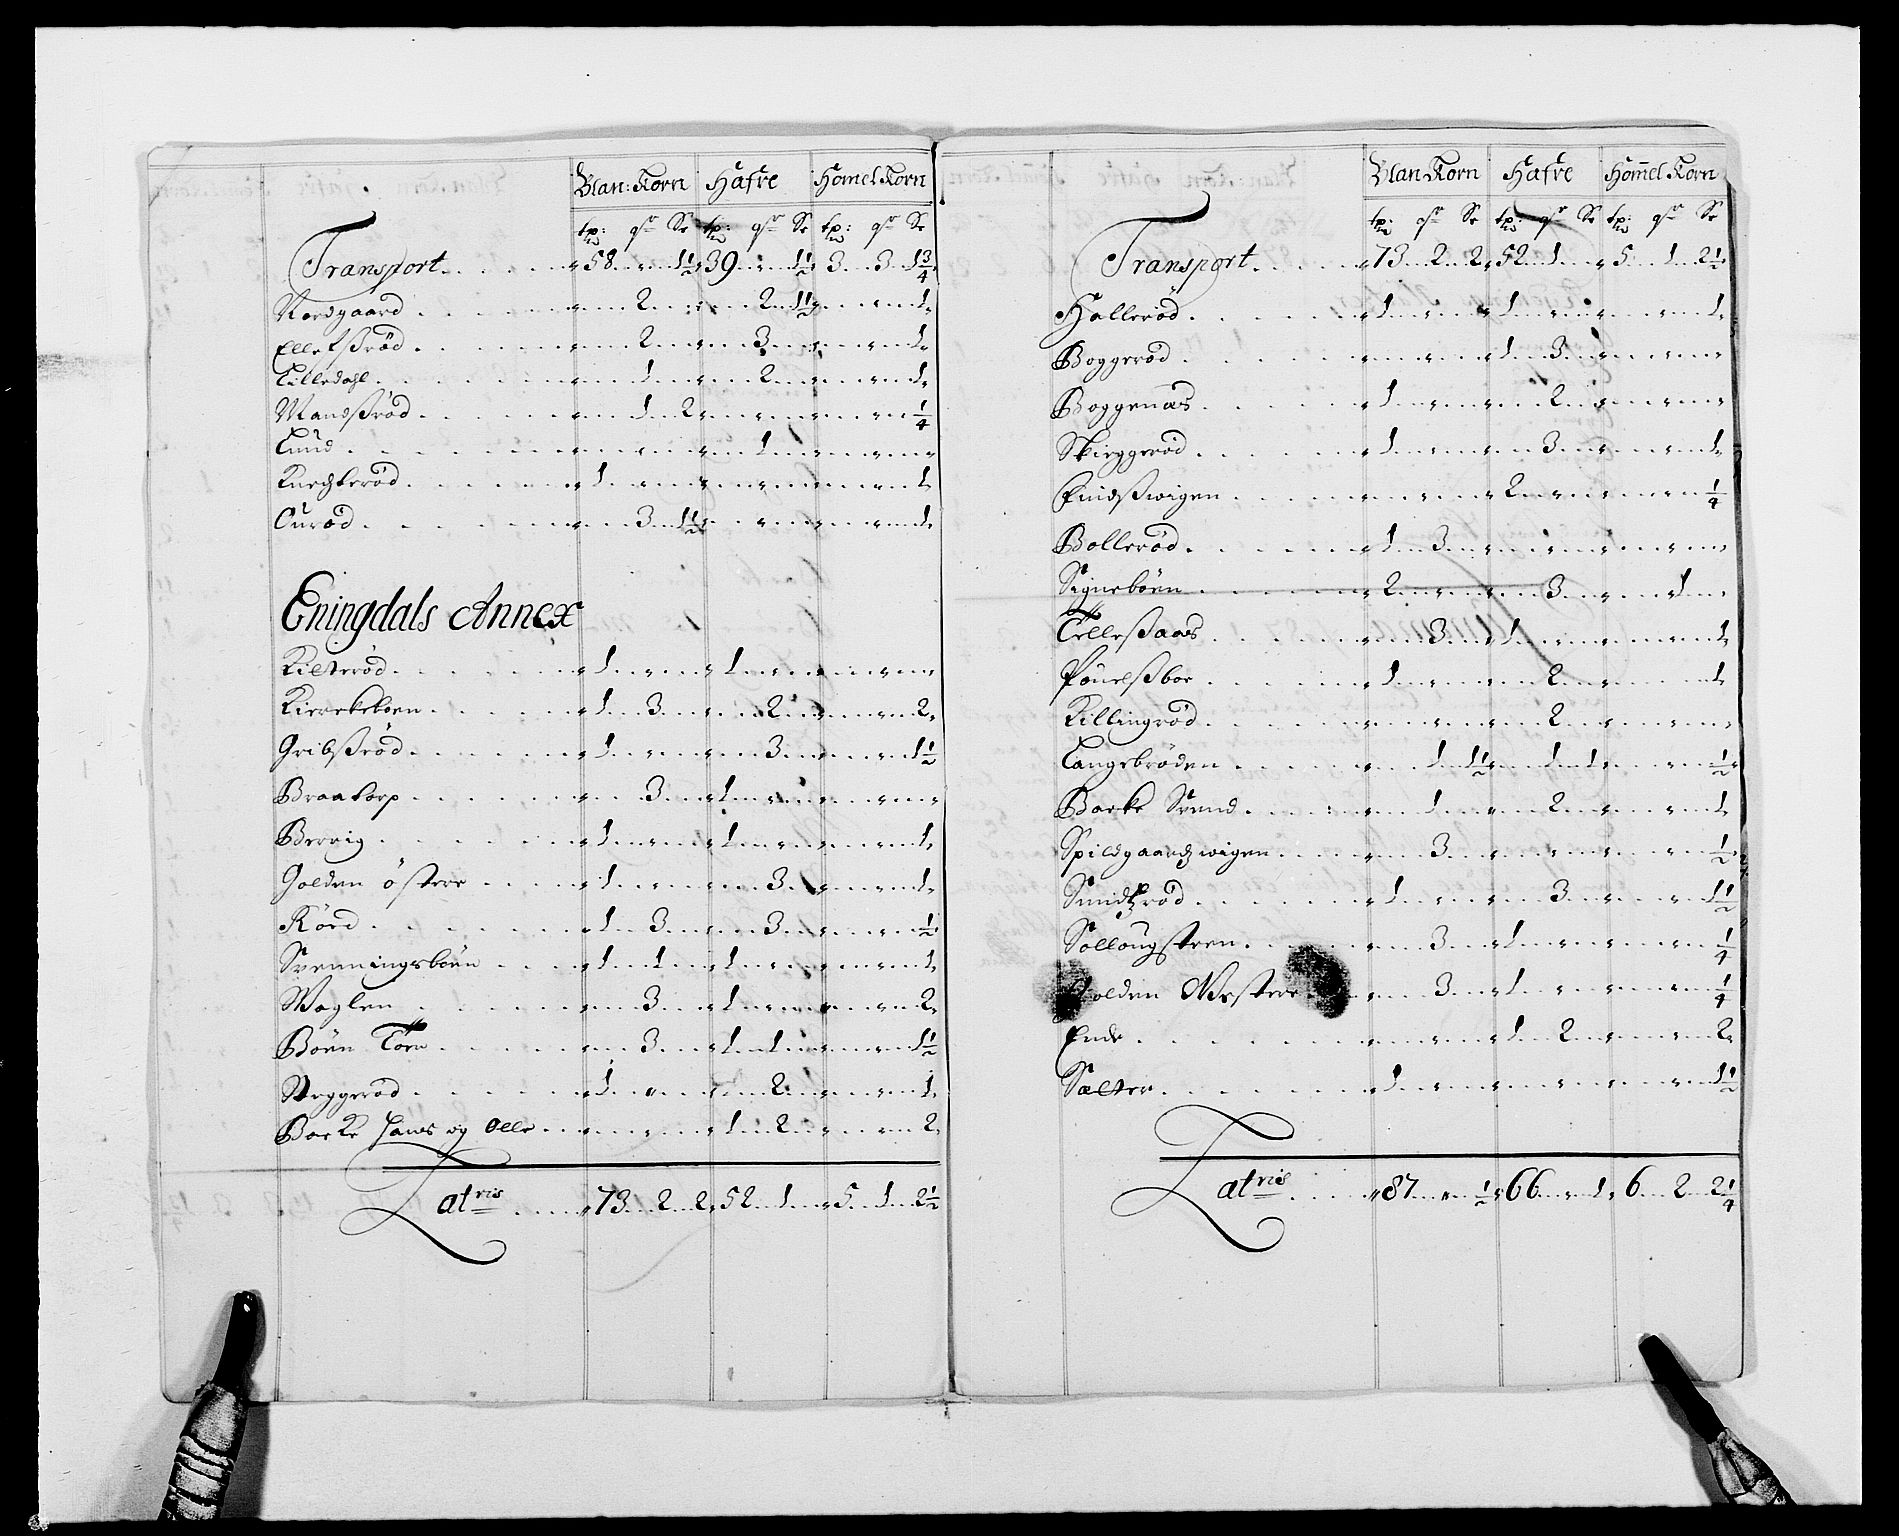 Blan: Korn Hafre Homel Korn
tp: qr Se tp: qr Se tp: qr Se
Transport 58 „ 1½ 39 „ 1½ 3 3 1¾
Nordgaard „ 2 „ „ 2 1½ „ „ 1
Ellefsrød „ 2 „ „ 3 „ „ „ 1
Lilledahl „ 1 „ „ 2 „ „ „ 1
Mandsrød „ 1 2 „ „ „ „ „ ¼
Lund „ „ „ „ 1 „ „ „ „
Knechterød 1 „ „ „ „ „ „ „ 1
Aurød „ 3 1½ „ „ „ „ „ 1
Eningdals Annex
Kilterød 1 „ „ 1 „ „ „ „ „
Kirrekeboen 1 3 „ „ 2 „ „ „ 2
Gribsrød 1 „ „ „ 3 „ „ „ 1½
Braatorp „ 3 „ 1 „ „ „ „ „
Bervig 1 „ „ 1 „ „ „ „ 1
Holden østere 1 „ „ „ 3 „ „ „ 1
Kørd 1 3 „ „ 3 „ „ „ ½
Svenningsbøen 1 1 „ 1 „ „ „ „ 1
Waglen „ 3 „ 1 „ „ „ „ 2
Bøen Torn „ 3 „ 1 1 „ „ „ 1½
Veggerød 1 „ „ „ 2 „ „ „ 1
Backe Hans og Olle „ „ „ 1 2 „ „ „ 2
Latris 73 2 2 52 1 „ 5 1 2½
Blan Korn Hafre Homel Korn
tp: qr Se tp: qr Se tp: qr Se
Transport 73 2 2 52 1 „ 5 1 2½
Hallerød 1 „ „ 1 „ „ „ „ 1
Boggerød „ „ „ 1 3 „ „ „ „
Boggenæs 1 „ „ „ 2 „ „ „ „
Skieggerød 1 „ „ „ 3 „ „ „ 1
Findswigen „ „ „ 2 „ „ „ „ ¼
Bollerød 1 3 „ „ „ „ „ „ „
Signebøen 2 „ „ „ 3 „ „ 1 „
Tellesaas „ 3 „ 1 „ „ „ „ 1
Pouelsboe 1 „ „ „ 2 „ „ „ 1
Killingrød „ „ „ „ 2 „ „ „ „
Langebrøden „ 1 1½ „ 1 1 „ „ ½
Backe Svend „ 1 „ „ 2 „ „ „ 1
Spildgaardswigen „ 3 „ „ „ „ „ „ ½
Smidtzrød 1 „ „ „ 3 „ „ „ 1½
Sollougsteen „ 3 „ 1 „ „ „ „ ¼
Holden Westere „ 3 „ 1 „ „ „ „ ¼
Ende „ „ „ 1 2 „ „ „ 2
Sælter 1 „ „ „ „ „ „ „ 1½
Latris 87 „ ½ 66 „ 1 6 2 2¼